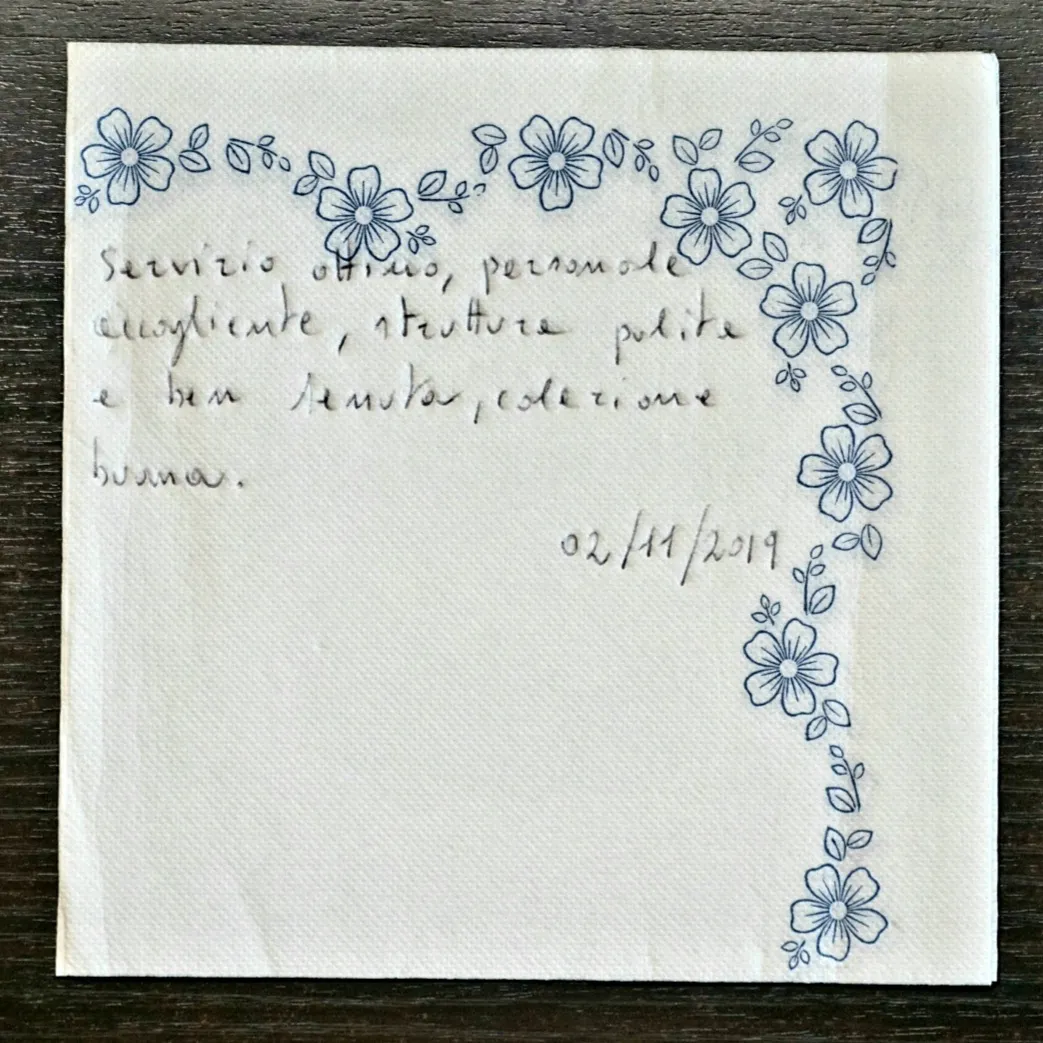 Servizio ottimo, personale
accogliente, struttura pulita
e ben tenuta, colazione
buona.
02/11/2019